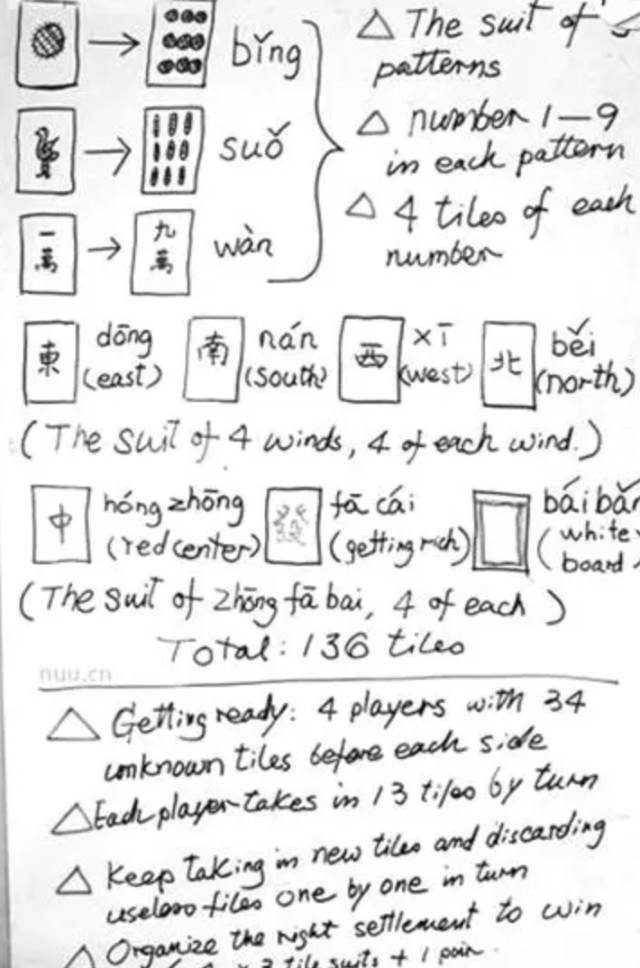 bǐng
△ The suit of
patterns
suǒ
△ number 1—9
in each pattern
一萬 → 九萬
wàn
△ 4 tiles of each
number
東 dōng
(east)
南 nán
(south)
西 xī
(west)
北 běi
(north)
(The suit of 4 winds, 4 of each wind.)
中 hóng zhōng
(red center)
發 fā cái
(getting rich)
bái bǎn
(white
board)
(The suit of zhōng fā bai, 4 of each)
Total: 136 tiles
nuu.cn
△ Getting ready: 4 players with 34
unknown tiles before each side
△ Each player takes in 13 tiles by turn
△ Keep taking in new tiles and discarding
useless tiles one by one in turn
△ Organize the right settlement to win
3 tile suits + 1 pair.